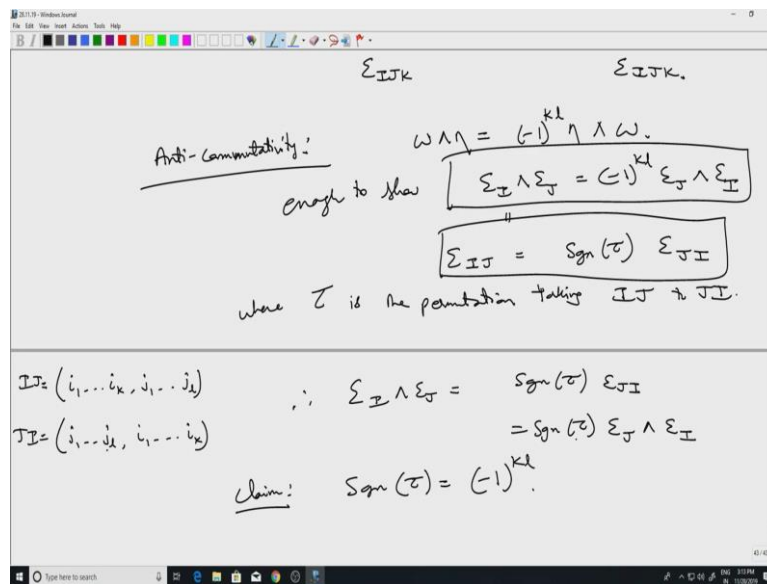 28.11.19 - Windows Journal
File Edit View Insert Actions Tools Help
B I
Ɛ_IJK Ɛ_IJK.
Anti-commutativity: ω∧η = (-1)^kl η ∧ ω.
enough to show Ɛ_I ∧ Ɛ_J = (-1)^kl Ɛ_J ∧ Ɛ_I
"
Ɛ_IJ = Sgn(τ) Ɛ_JI
where τ is the permutation taking IJ to JI.
IJ = (i₁ ... i_k, j₁ .. j_l) ∴ Ɛ_I ∧ Ɛ_J = Sgn(τ) Ɛ_JI
JI = (j₁ ... j_l, i₁ ... i_k) = Sgn(τ) Ɛ_J ∧ Ɛ_I
Claim: Sgn(τ) = (-1)^kl.
43/43
Type here to search
ENG 3:13 PM
IN 11/28/2019